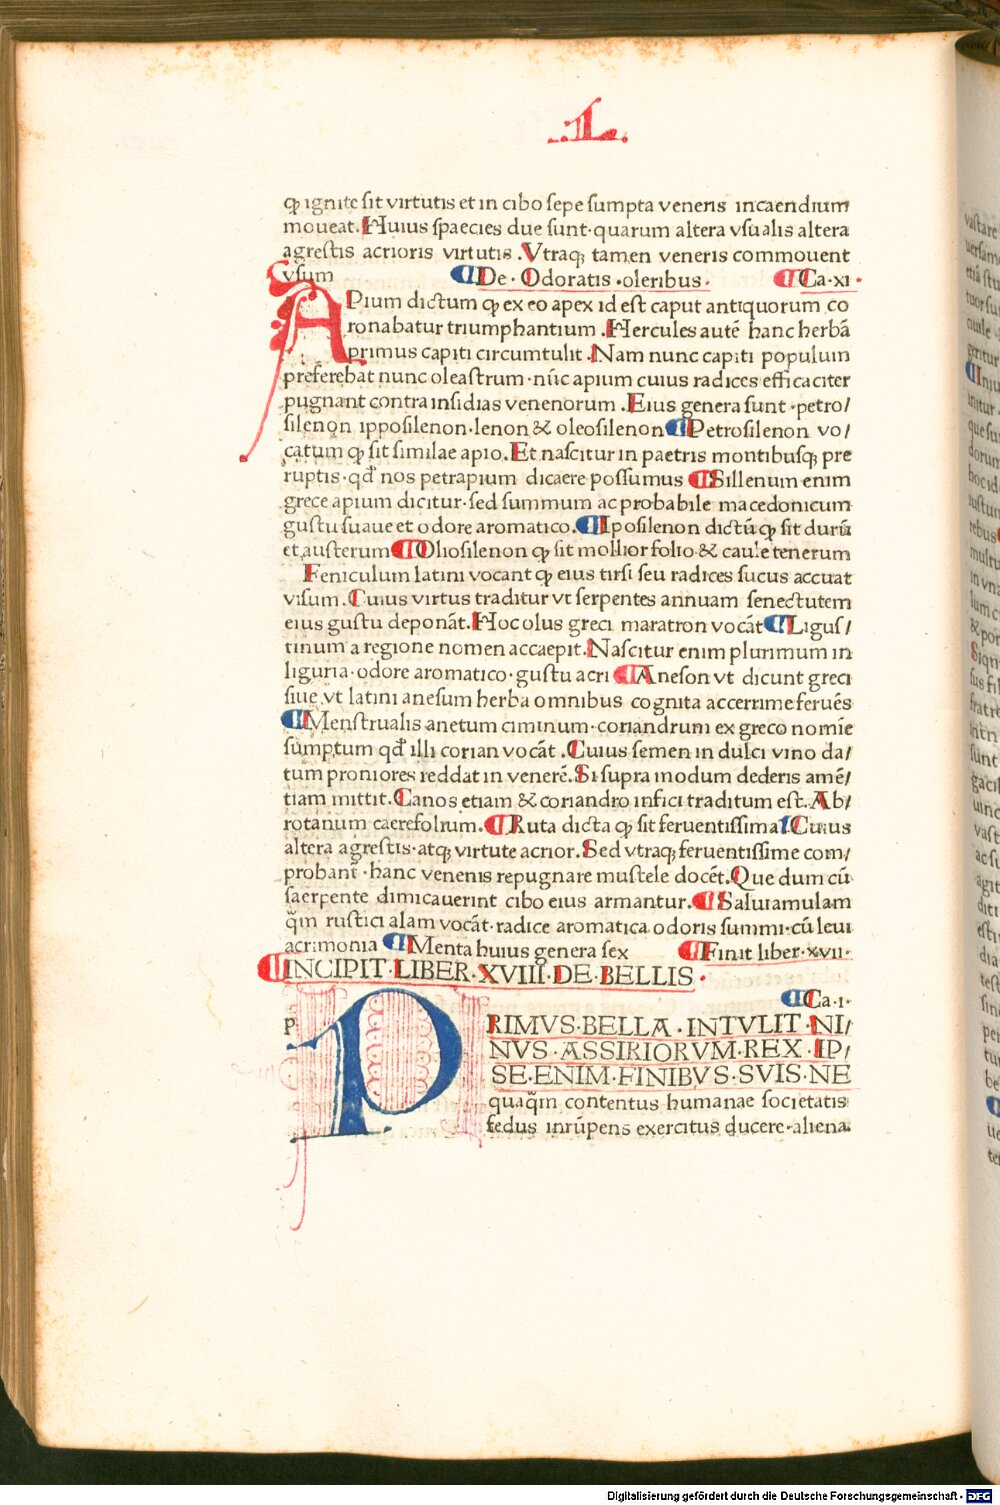 .L.
ꝙ ignite ſit virtutis et in cibo ſepe ſumpta veneris incaendium
moueat. Huius ſpaecies due ſunt· quarum altera vſualis altera
agreſtis acrioris virtutis .Vtraqꝫ tamen veneris commouent
vſum ¶De· Odoratis ·oleribus· ¶Ca·xi·
APium dictum ꝙ ex eo apex id eſt caput antiquorum co
ronabatur triumphantium .Hercules autē hanc herbā
primus capiti circumtulit .Nam nunc capiti populum
preferebat nunc oleaſtrum·nūc apium cuius radices efficaciter
pugnant contra inſidias venenorum .Eius genera ſunt ·petro/
ſilenon ippoſilenon·lenon & oleoſilenon ¶Petroſilenon vo/
catum ꝙ ſit ſimilae apio. Et naſcitur in paetris montibuſqꝫ pre
ruptis·qđ nos petrapium dicaere poſſumus ¶Sillenum enim
grece apium dicitur·ſed ſummum ac probabile macedonicum
guſtu ſuaue et odore aromatico. ¶Ipoſilenon dictū ꝙ ſit durū
et auſterum ¶Olioſilenon ꝙ ſit mollior folio & caule tenerum
Feniculum latini vocant ꝙ eius tirſi ſeu radices ſucus accuat
viſum. Cuius virtus traditur vt ſerpentes annuam ſenectutem
eius guſtu deponāt. Hoc olus greci maratron vocāt ¶Liguſ/
tinum a regione nomen accaepit. Naſcitur enim plurimum in
liguria·odore aromatico·guſtu acri ¶Aneſon vt dicunt greci
ſiue vt latini aneſum herba omnibus cognita accerrime feruēs
¶Menſtrualis anetum ciminum·coriandrum ex greco nomīe
ſumptum qđ illi corian vocāt .Cuius ſemen in dulci vino da/
tum proniores reddat in venerē. Si ſupra modum dederis amē/
tiam mittit. Canos etiam & coriandro infici traditum eſt. Ab/
rotanum caerefolium. ¶Ruta dicta ꝙ ſit feruentiſſima Cuius
altera agreſtis·atqꝫ virtute acrior. Sed vtraqꝫ feruentiſſime com/
probant̄ ·hanc venenis repugnare muſtele docēt. Que dum cū
ſaerpente dimicauerint cibo eius armantur. ¶Saluiamulam
q̄m ruſtici alam vocāt·radice aromatica odoris ſummi·cū leui
acrimonia ¶Menta huius genera ſex ¶Finit liber·xvii·
¶INCIPIT·LIBER·XVIII·DE·BELLIS·
¶Ca·i·
PRIMVS·BELLA·INTVLIT·NI/
NVS·ASSIRIORVM·REX·IP/
SE·ENIM·FINIBVS·SVIS·NE
quaq̄m contentus humanae ſocietatis
fedus inrūpens exercitus ducere·aliena
Digitalisierung gefördert durch die Deutsche Forschungsgemeinschaft - DFG